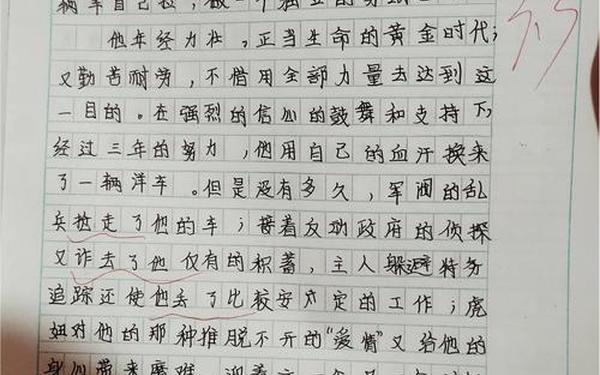 辆车自己拉，做一个独立的劳
他年经力壮，正当生命的黄金时代；
又勤苦耐劳，不惜用全部力量去达到这
一目的。在强烈的信心的鼓舞和支持下，
经过三年的努力，他用自己的血汗换来
了一辆洋车。但是没有多久，军阀的乱
兵抢走了他的车；接着反动政府的侦探
又诈去了他仅有的积蓄，主人躲避特务
追踪还使他丢了比较安定的工作；虎
妞对他的那种推脱不开的“爱情”又给他的
身心带来磨难。迎着这一个